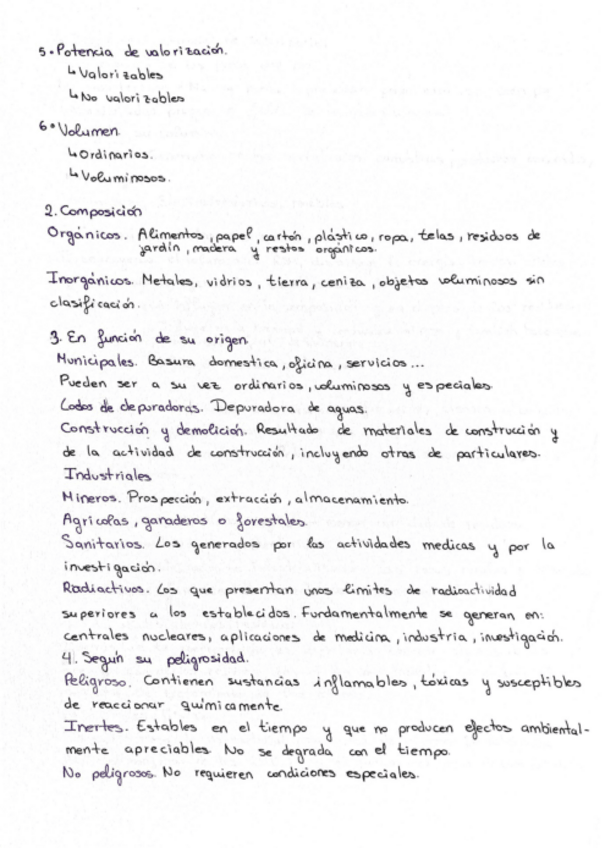 5. Potencia de valorización.
↳ Valorizables
↳ No valorizables
6. Volumen
↳ Ordinarios.
↳ Voluminosos.
2. Composición
Orgánicos. Alimentos, papel, cartón, plástico, ropa, telas, residuos de
jardín, madera y restos orgánicos.
Inorgánicos. Metales, vidrios, tierra, ceniza, objetos voluminosos sin
clasificación.
3. En función de su origen
Municipales. Basura domestica, oficina, servicios...
Pueden ser a su vez ordinarios, voluminosos y especiales
Lodos de depuradoras. Depuradora de aguas.
Construcción y demolición. Resultado de materiales de construcción y
de la actividad de construcción, incluyendo otras de particulares.
Industriales
Mineros. Prospección, extracción, almacenamiento.
Agrícolas, ganaderos o forestales
Sanitarios. Los generados por las actividades medicas y por la
investigación.
Radiactivos. Los que presentan unos limites de radioactividad
superiores a los establecidos. Fundamentalmente se generan en:
centrales nucleares, aplicaciones de medicina, industria, investigación.
4. Según su peligrosidad.
Peligroso. Contienen sustancias inflamables, tóxicas y susceptibles
de reaccionar químicamente.
Inertes. Estables en el tiempo y que no producen efectos ambiental-
mente apreciables. No se degrada con el tiempo.
No peligrosos. No requieren condiciones especiales.